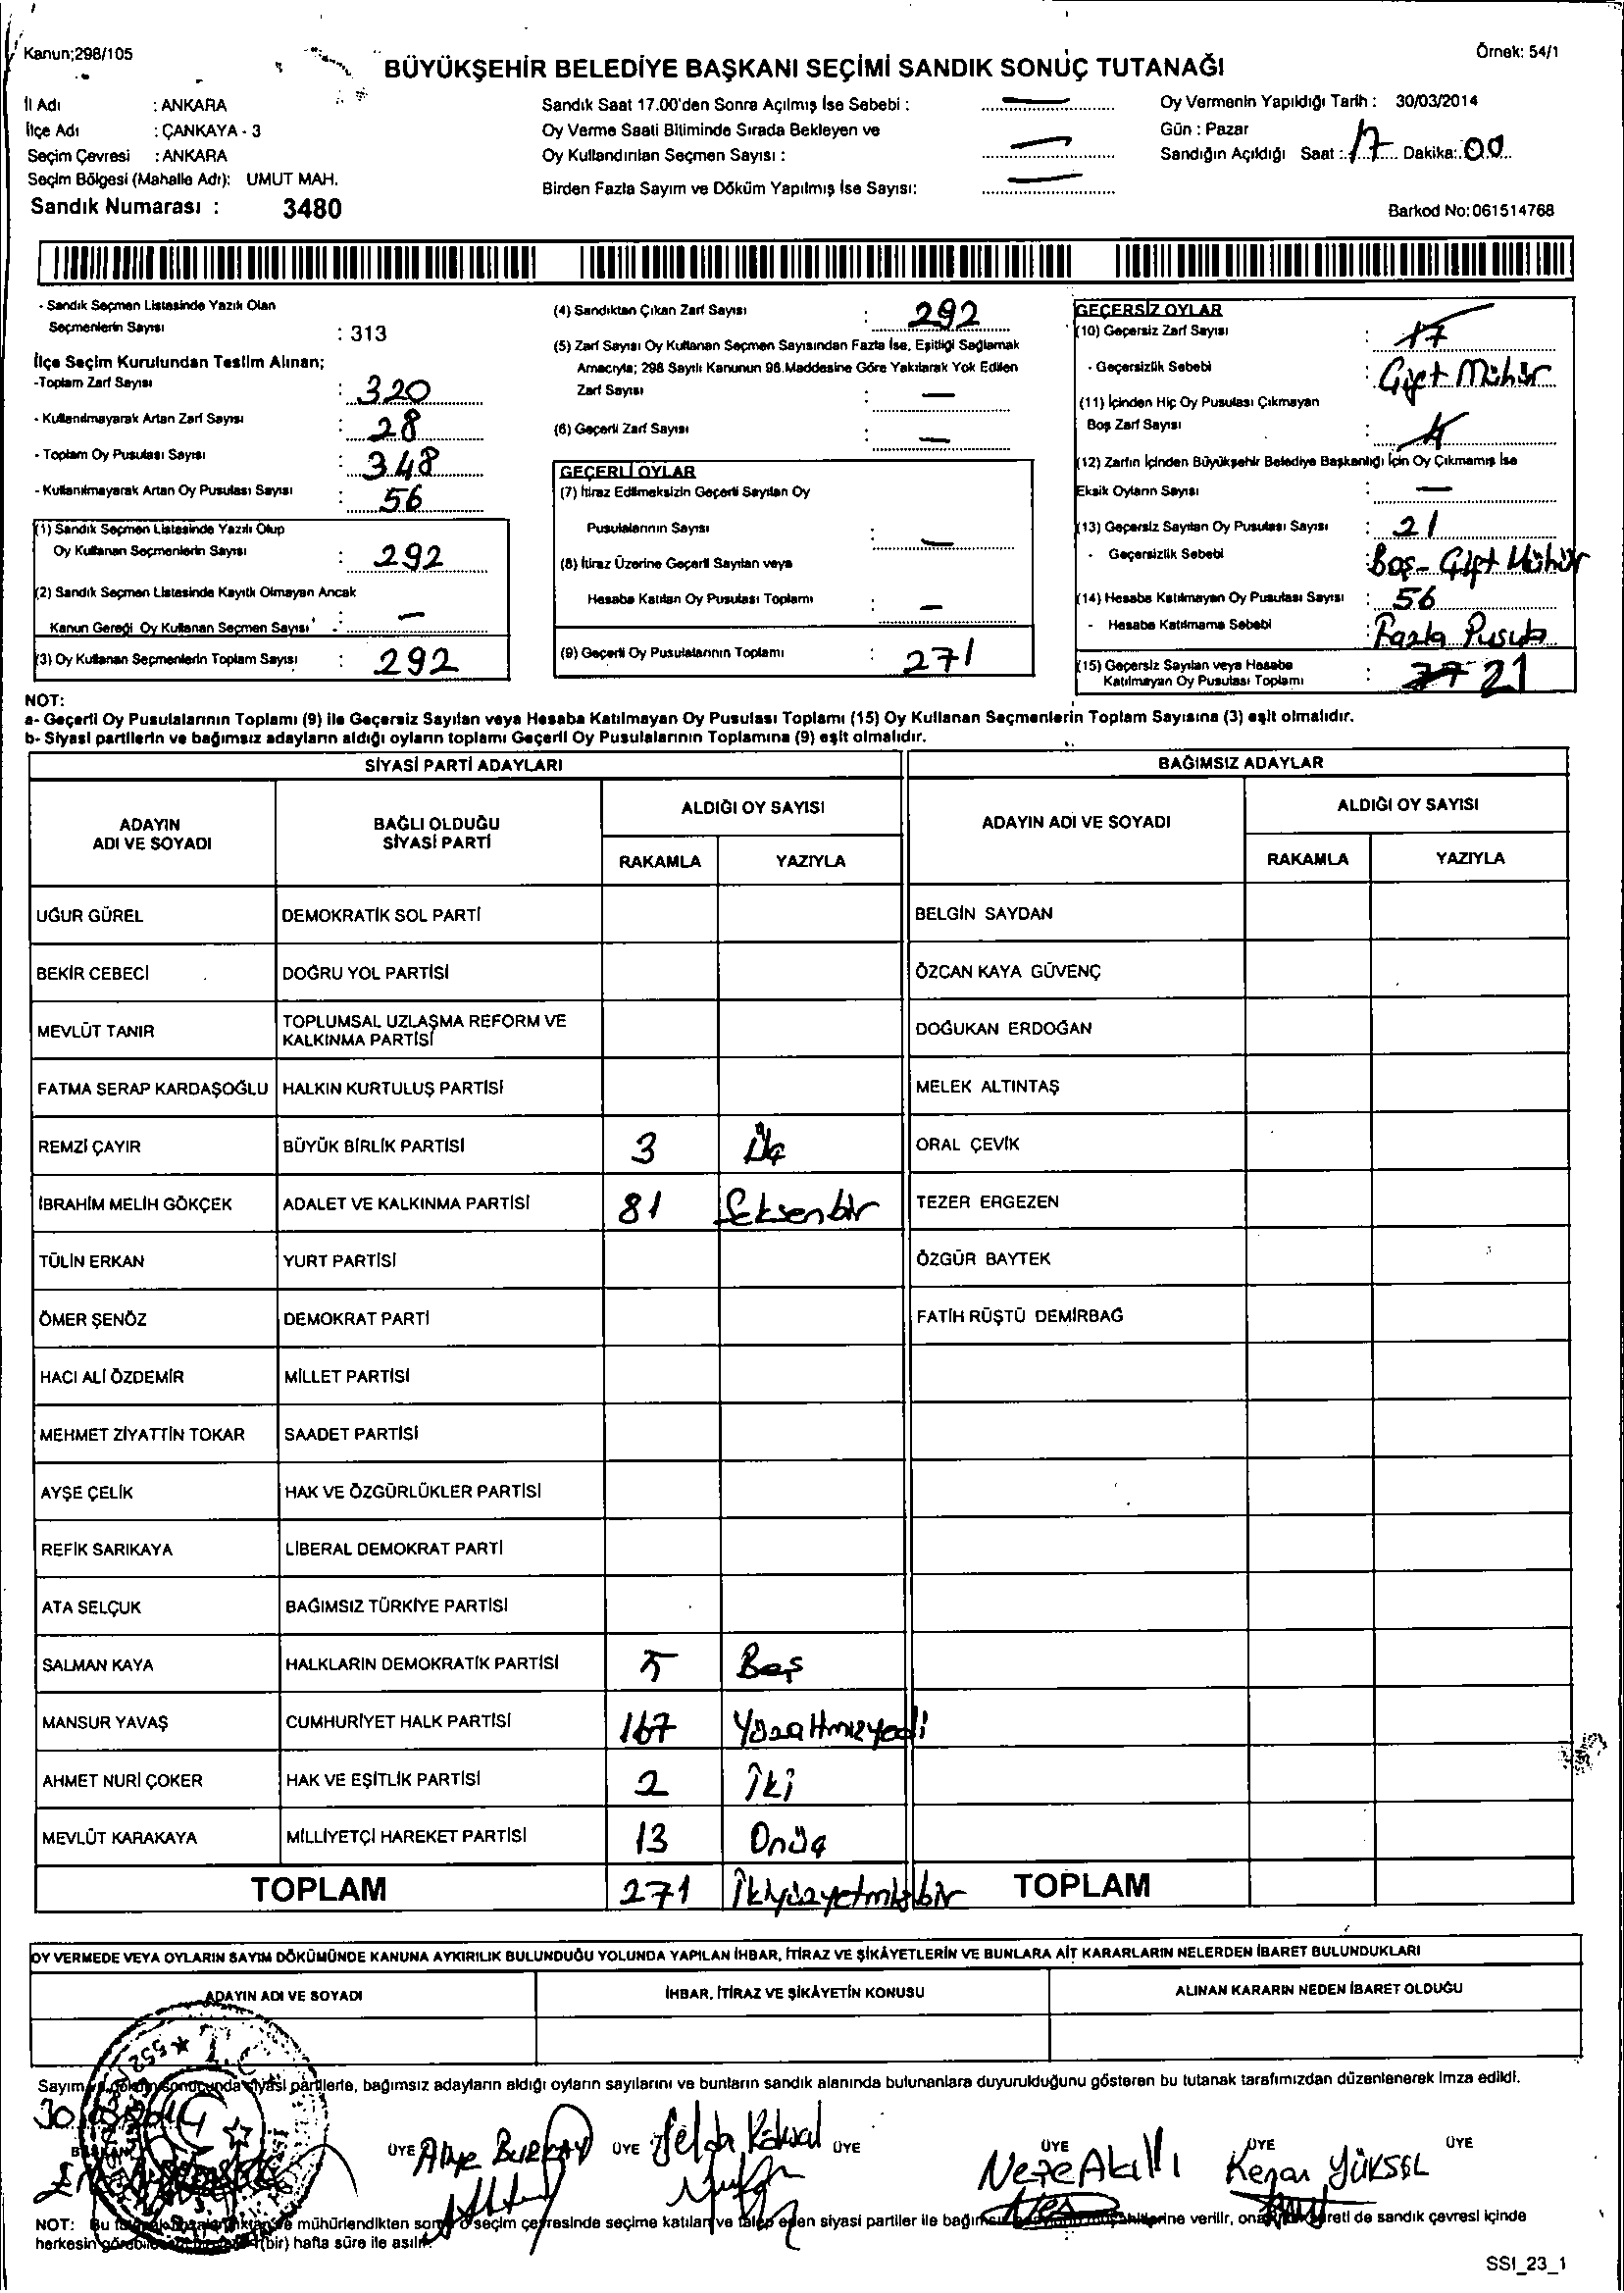 Kanun;298/105
BÜYÜKŞEHİR BELEDİYE BAŞKANI SEÇİMİ SANDIK SONUÇ TUTANAĞI
Örnek: 54/1
İl Adı : ANKARA
İlçe Adı : ÇANKAYA - 3
Seçim Çevresi : ANKARA
Seçim Bölgesi (Mahalle Adı): UMUT MAH.
Sandık Numarası : 3480
Sandık Saat 17.00'den Sonra Açılmış İse Sebebi : —
Oy Verme Saati Bitiminde Sırada Bekleyen ve
Oy Kullandırılan Seçmen Sayısı : —
Birden Fazla Sayım ve Döküm Yapılmış İse Sayısı: —
Oy Vermenin Yapıldığı Tarih : 30/03/2014
Gün : Pazar
Sandığın Açıldığı Saat : 17 Dakika: 00
Barkod No: 061514768
- Sandık Seçmen Listesinde Yazılı Olan
Seçmenlerin Sayısı : 313
İlçe Seçim Kurulundan Teslim Alınan;
-Toplam Zarf Sayısı : 320
- Kullanılmayarak Artan Zarf Sayısı : 28
- Toplam Oy Pusulası Sayısı : 348
- Kullanılmayarak Artan Oy Pusulası Sayısı : 56
(1) Sandık Seçmen Listesinde Yazılı Olup
Oy Kullanan Seçmenlerin Sayısı : 292
(2) Sandık Seçmen Listesinde Kayıtlı Olmayan Ancak
Kanun Gereği Oy Kullanan Seçmen Sayısı : —
(3) Oy Kullanan Seçmenlerin Toplam Sayısı : 292
(4) Sandıktan Çıkan Zarf Sayısı : 292
(5) Zarf Sayısı Oy Kullanan Seçmen Sayısından Fazla İse, Eşitliği Sağlamak
Amacıyla; 298 Sayılı Kanunun 98.Maddesine Göre Yakılarak Yok Edilen
Zarf Sayısı : —
(6) Geçerli Zarf Sayısı : —
GEÇERLİ OYLAR
(7) İtiraz Edilmeksizin Geçerli Sayılan Oy
Pusulalarının Sayısı : —
(8) İtiraz Üzerine Geçerli Sayılan veya
Hesaba Katılan Oy Pusulası Toplamı : —
(9) Geçerli Oy Pusulalarının Toplamı : 271
GEÇERSİZ OYLAR
(10) Geçersiz Zarf Sayısı : 17
- Geçersizlik Sebebi : Çift Mühür
(11) İçinden Hiç Oy Pusulası Çıkmayan
Boş Zarf Sayısı : 4
(12) Zarfın İçinden Büyükşehir Belediye Başkanlığı İçin Oy Çıkmamış İse
Eksik Oyların Sayısı : —
(13) Geçersiz Sayılan Oy Pusulası Sayısı : 21
- Geçersizlik Sebebi : Boş - Çift Mühür
(14) Hesaba Katılmayan Oy Pusulası Sayısı : 56
- Hesaba Katılmama Sebebi : Fazla Pusula
(15) Geçersiz Sayılan veya Hesaba
Katılmayan Oy Pusulası Toplamı : 77 21
NOT:
a- Geçerli Oy Pusulalarının Toplamı (9) ile Geçersiz Sayılan veya Hesaba Katılmayan Oy Pusulası Toplamı (15) Oy Kullanan Seçmenlerin Toplam Sayısına (3) eşit olmalıdır.
b- Siyasi partilerin ve bağımsız adayların aldığı oyların toplamı Geçerli Oy Pusulalarının Toplamına (9) eşit olmalıdır.
SİYASİ PARTİ ADAYLARI BAĞIMSIZ ADAYLAR
ADAYIN ADI VE SOYADI BAĞLI OLDUĞU SİYASİ PARTİ ALDIĞI OY SAYISI ADAYIN ADI VE SOYADI ALDIĞI OY SAYISI
RAKAMLA YAZIYLA RAKAMLA YAZIYLA
UĞUR GÜREL DEMOKRATİK SOL PARTİ BELGİN SAYDAN
BEKİR CEBECİ DOĞRU YOL PARTİSİ ÖZCAN KAYA GÜVENÇ
MEVLÜT TANIR TOPLUMSAL UZLAŞMA REFORM VE KALKINMA PARTİSİ DOĞUKAN ERDOĞAN
FATMA SERAP KARDAŞOĞLU HALKIN KURTULUŞ PARTİSİ MELEK ALTINTAŞ
REMZİ ÇAYIR BÜYÜK BİRLİK PARTİSİ 3 Üç ORAL ÇEVİK
İBRAHİM MELİH GÖKÇEK ADALET VE KALKINMA PARTİSİ 81 Seksenbir TEZER ERGEZEN
TÜLİN ERKAN YURT PARTİSİ ÖZGÜR BAYTEK
ÖMER ŞENÖZ DEMOKRAT PARTİ FATİH RÜŞTÜ DEMİRBAĞ
HACI ALİ ÖZDEMİR MİLLET PARTİSİ
MEHMET ZİYATTİN TOKAR SAADET PARTİSİ
AYŞE ÇELİK HAK VE ÖZGÜRLÜKLER PARTİSİ
REFİK SARIKAYA LİBERAL DEMOKRAT PARTİ
ATA SELÇUK BAĞIMSIZ TÜRKİYE PARTİSİ
SALMAN KAYA HALKLARIN DEMOKRATİK PARTİSİ 5 Beş
MANSUR YAVAŞ CUMHURİYET HALK PARTİSİ 167 Yüzaltmışyedi
AHMET NURİ ÇOKER HAK VE EŞİTLİK PARTİSİ 2 İki
MEVLÜT KARAKAYA MİLLİYETÇİ HAREKET PARTİSİ 13 Onüç
TOPLAM 271 İkiyüzyetmişbir TOPLAM
OY VERMEDE VEYA OYLARIN SAYIM DÖKÜMÜNDE KANUNA AYKIRILIK BULUNDUĞU YOLUNDA YAPILAN İHBAR, İTİRAZ VE ŞİKÂYETLERİN VE BUNLARA AİT KARARLARIN NELERDEN İBARET BULUNDUKLARI
ADAYIN ADI VE SOYADI İHBAR, İTİRAZ VE ŞİKÂYETİN KONUSU ALINAN KARARIN NEDEN İBARET OLDUĞU
Sayım ve döküm sonucunda siyasi partilerle, bağımsız adayların aldığı oyların sayılarını ve bunların sandık alanında bulunanlara duyurulduğunu gösteren bu tutanak tarafımızdan düzenlenerek imza edildi.
BAŞKAN ÜYE ÜYE ÜYE ÜYE ÜYE ÜYE
Selda Köksal Neşe Akıllı Kenan YÜKSEL
NOT: Bu mühürlendikten seçim çevresinde seçime katılan ve talep eden siyasi partiler ile verilir, de sandık çevresi içinde
herkesin (bir) hafta süre ile asılır.
SSI_23_1